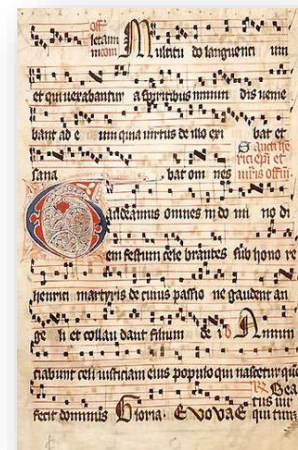 off
letania Multitu do languenti um
et qui vexabantur a spiritibus inmun dis venie
bant ad e um quia virtus de illo exi bat et
sana bat om nes
Sancti hen
rici epi et
mris offm
Gaudeamus omnes in do mi no di
em festum cele brantes sub hono re
henrici martyris de cuius passio ne gaudent an
ge li et collau dant filium de i Annun
ciabunt celi iusticiam eius populo qui nascetur que
fecit dominus Gloria Evovae
Bea
tus vir
qui tima